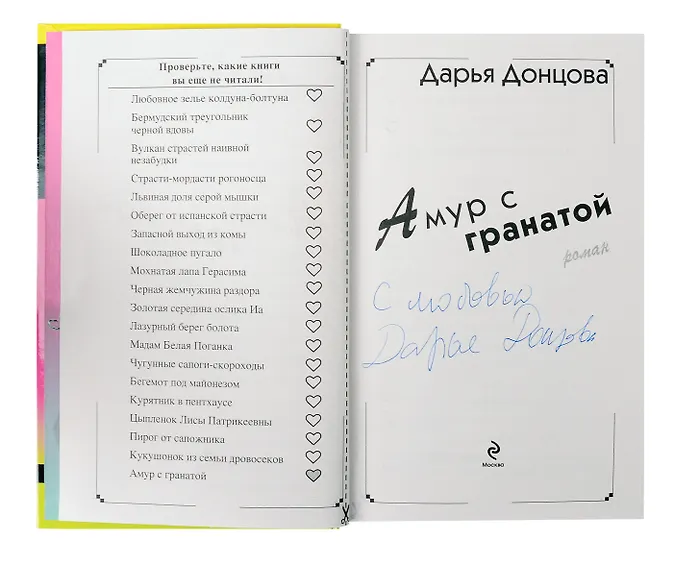 Проверьте, какие книги
вы еще не читали!
Любовное зелье колдуна-болтуна
Бермудский треугольник
черной вдовы
Вулкан страстей наивной
незабудки
Страсти-мордасти рогоносца
Львиная доля серой мышки
Оберег от испанской страсти
Запасной выход из комы
Шоколадное пугало
Мохнатая лапа Герасима
Черная жемчужина раздора
Золотая середина ослика Иа
Лазурный берег болота
Мадам Белая Поганка
Чугунные сапоги-скороходы
Бегемот под майонезом
Курятник в пентхаусе
Цыпленок Лисы Патрикеевны
Пирог от сапожника
Кукушонок из семьи дровосеков
Амур с гранатой
Дарья Донцова
Амур с
гранатой
роман
С любовью
Дарья Донцова
Москва